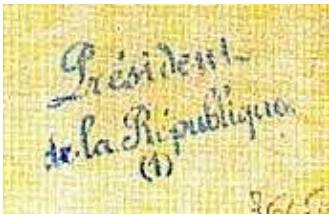 Président
de la République
(1)